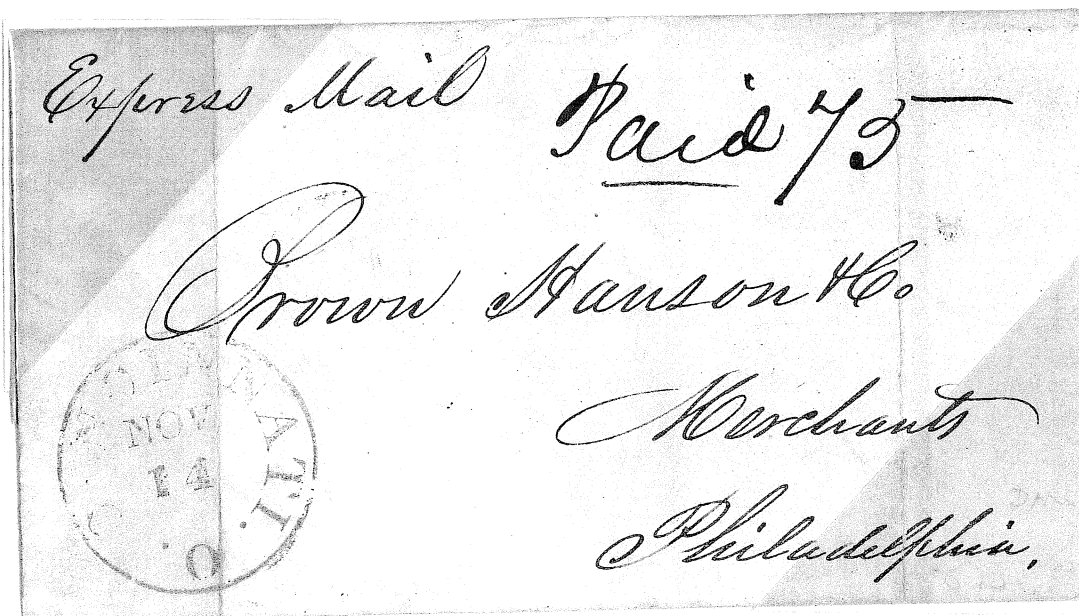 Express Mail
Paid 75
Brown Hanson & Co.
Merchants
Philadelphia.
CINCINNATI. O.
NOV
14